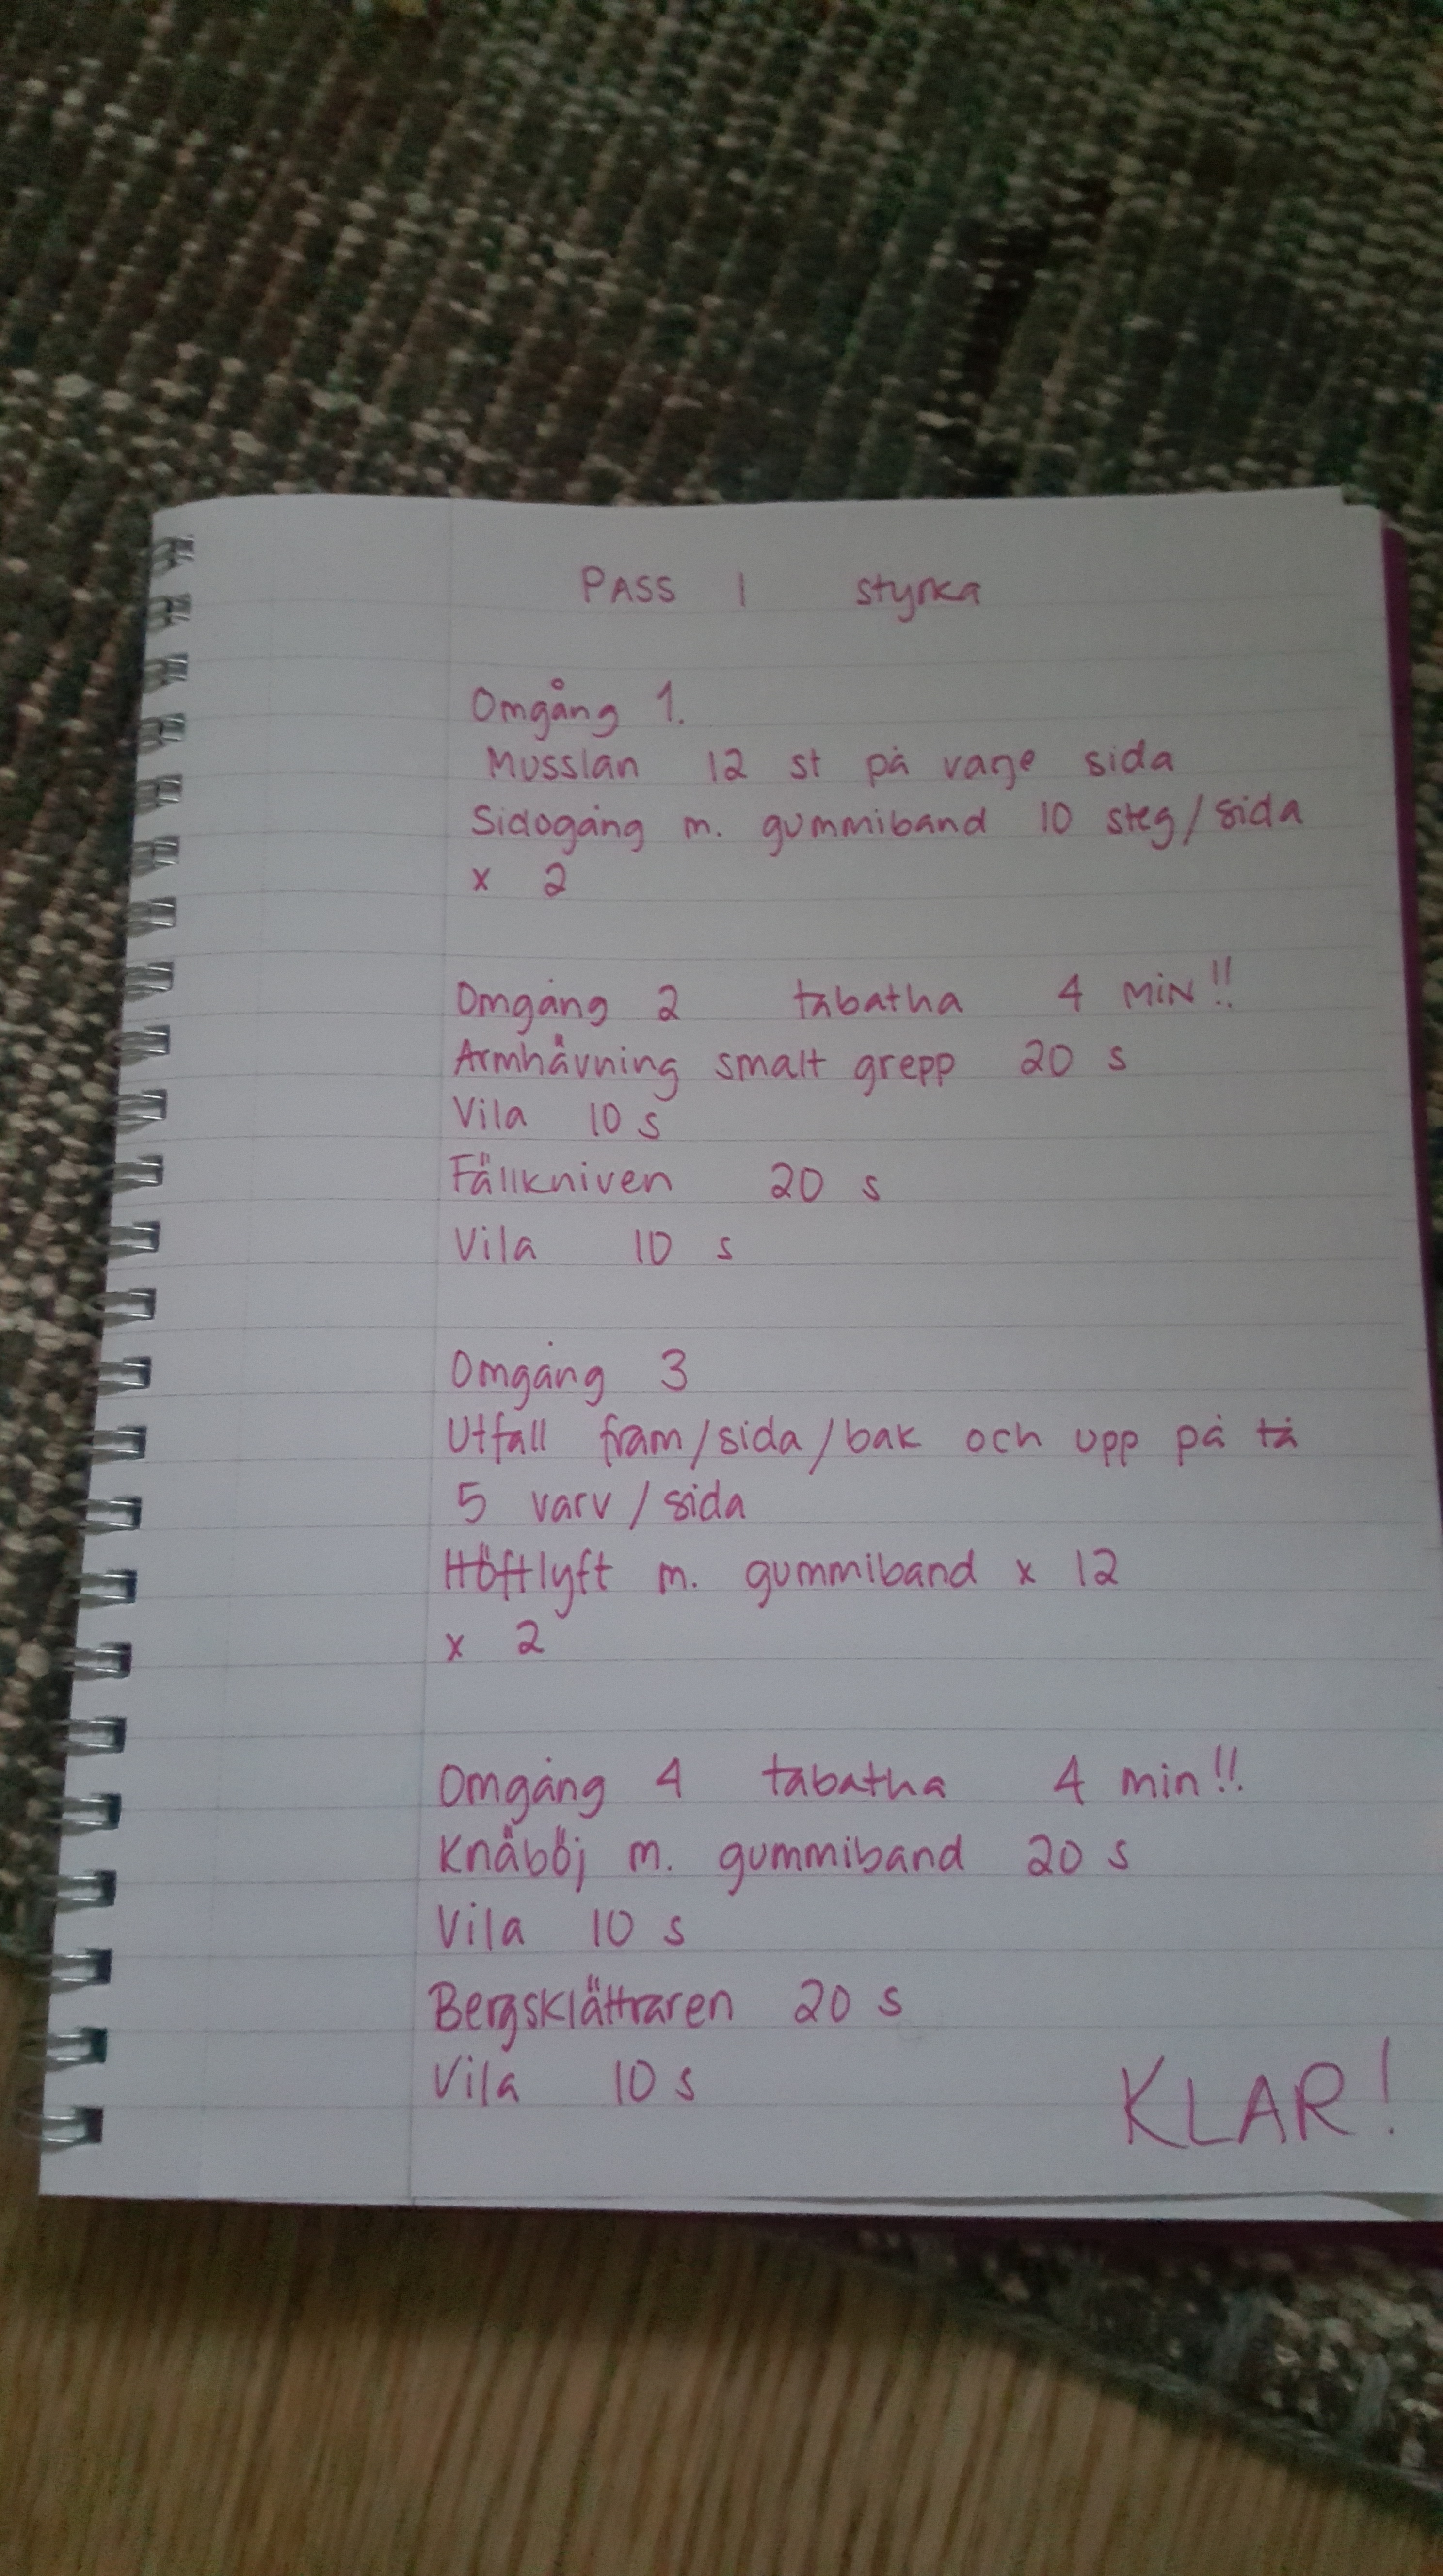 PASS 1 styrka
Omgång 1.
Musslan 12 st på vage sida
Sidogång m. gummiband 10 steg/sida
x 2
Omgång 2 tabatha 4 MIN!!
Armhävning smalt grepp 20 s
Vila 10 s
Fällkniven 20 s
Vila 10 s
Omgång 3
Utfall fram/sida/bak och upp på tå
5 varv/sida
Höftlyft m. gummiband x 12
x 2
Omgång 4 tabatha 4 min!!
Knäböj m. gummiband 20 s
Vila 10 s
Bergsklättraren 20 s
Vila 10 s
KLAR!